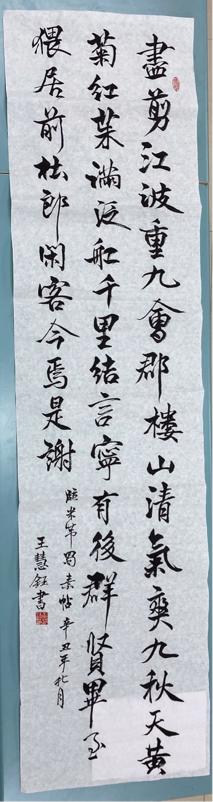 盡剪江波重九會郡樓山清氣爽九秋天黃
菊紅茱滿泛舡千里結言寧有後群賢畢至
猥居前杜郎閑客今焉是謝
臨米芾蜀素帖辛丑年月
王慧鈺書